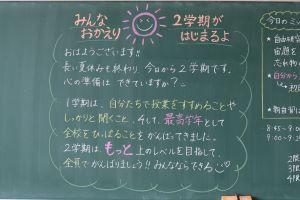 みんな
おかえり
2学期が
はじまるよ
おはようございます!!
長い夏休みも終わり、今日から2学期です。
心の準備はできていますか?
1学期は、自分たちで授業をすすめることや
しっかりと聞くこと、そして、最高学年として
全校をひっぱることをがんばってきました。
2学期は、もっと上のレベルを目指して、
全員でがんばりましょう!!みんなならできる
今日のミッ
自由研
宿題を
忘れ物
自分から
8:45~9:
9:00~
2問
3問
4問